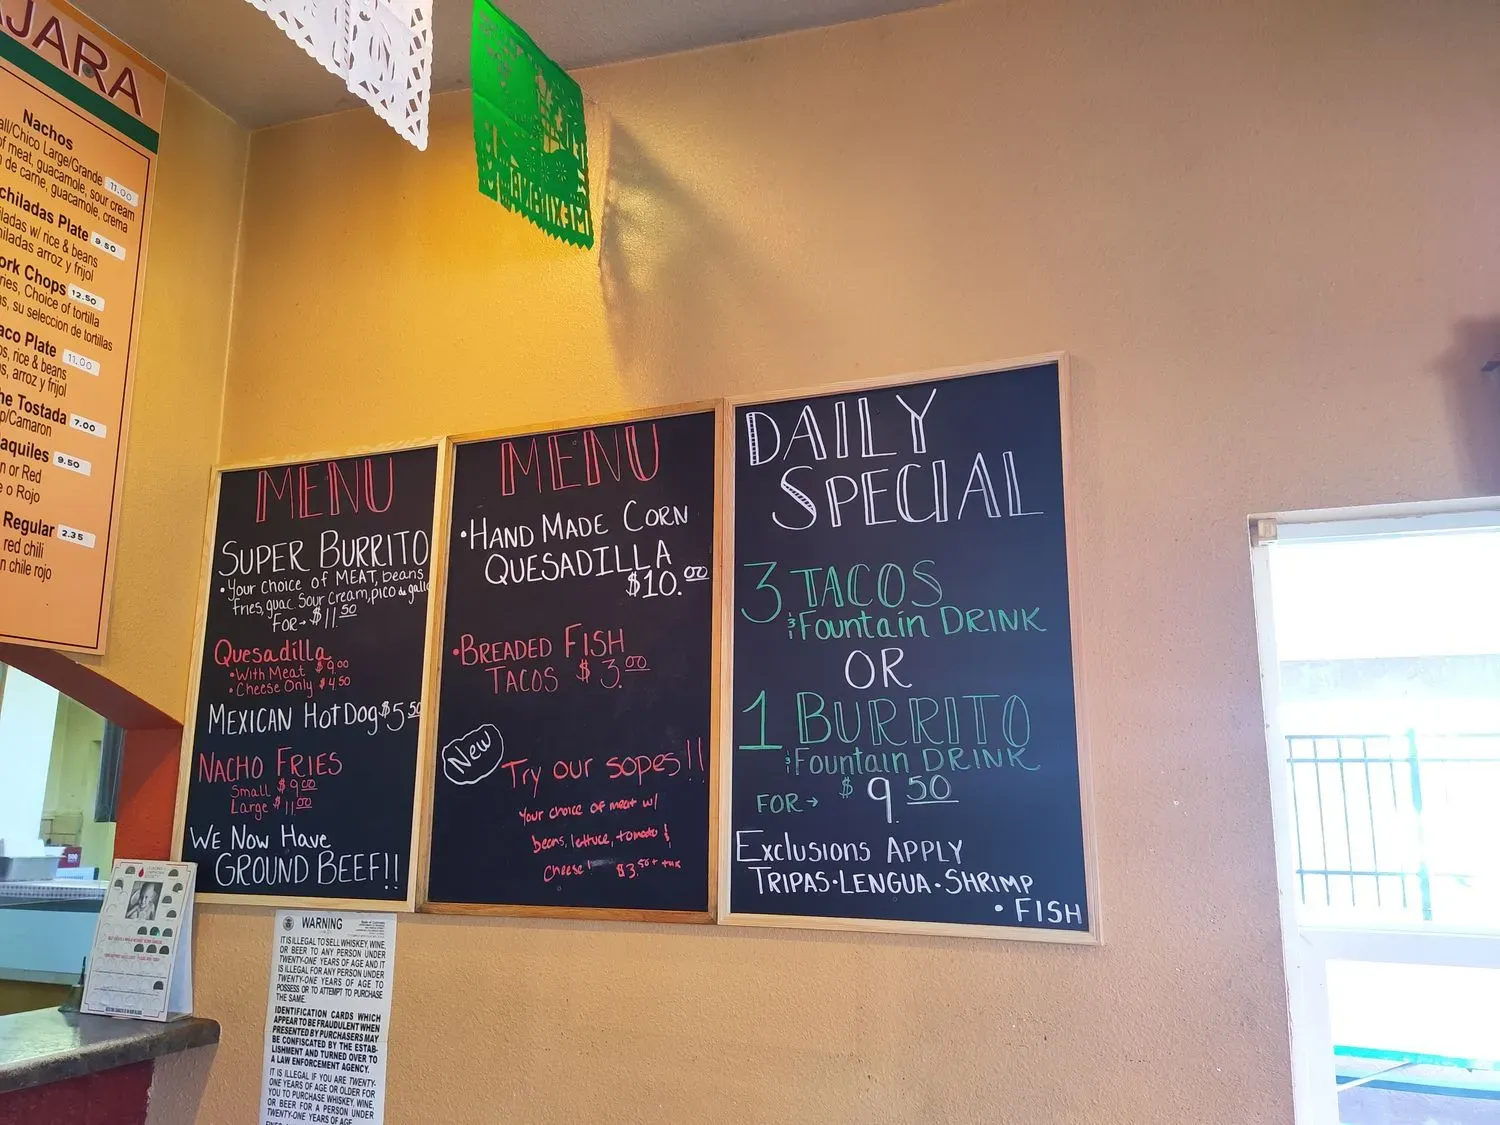 JARA
Nachos
all/Chico Large/Grande 11.00
of meat, guacamole, sour cream
de carne, guacamole, crema
chiladas Plate 9.50
iladas w/ rice & beans
hiladas arroz y frijol
ork Chops 12.50
ries, Choice of tortilla
as, su seleccion de tortillas
aco Plate 11.00
os, rice & beans
s, arroz y frijol
he Tostada 7.00
p/Camaron
aquiles 9.50
n or Red
e o Rojo
Regular 2.35
red chili
n chile rojo
MEXICANA
MENU
SUPER BURRITO
•Your choice of MEAT, beans
fries, guac, Sour Cream, pico de gallo
FOR→ $11.50
Quesadilla
•With Meat $9.00
•Cheese Only $4.50
MEXICAN HOT DOG $5.50
NACHO FRIES
Small $9.00
Large $11.00
WE NOW HAVE
GROUND BEEF!!
MENU
•HAND MADE CORN
QUESADILLA
$10.00
•BREADED FISH
TACOS $3.00
New
Try our sopes!!
Your choice of meat w/
beans, lettuce, tomato &
cheese! $3.50 + tax
DAILY
SPECIAL
3 TACOS
& Fountain DRINK
OR
1 BURRITO
& Fountain DRINK
FOR→ $9.50
Exclusions APPLY
TRIPAS•LENGUA•SHRIMP
•FISH
WARNING
IT IS ILLEGAL TO SELL WHISKEY, WINE,
OR BEER TO ANY PERSON UNDER
TWENTY-ONE YEARS OF AGE AND IT
IS ILLEGAL FOR ANY PERSON UNDER
TWENTY-ONE YEARS OF AGE TO
POSSESS OR TO ATTEMPT TO PURCHASE
THE SAME.
IDENTIFICATION CARDS WHICH
APPEAR TO BE FRAUDULENT WHEN
PRESENTED BY PURCHASERS MAY
BE CONFISCATED BY THE ESTAB-
LISHMENT AND TURNED OVER TO
A LAW ENFORCEMENT AGENCY.
IT IS ILLEGAL IF YOU ARE TWENTY-
ONE YEARS OF AGE OR OLDER FOR
YOU TO PURCHASE WHISKEY, WINE,
OR BEER FOR A PERSON UNDER
TWENTY-ONE YEARS OF AGE.